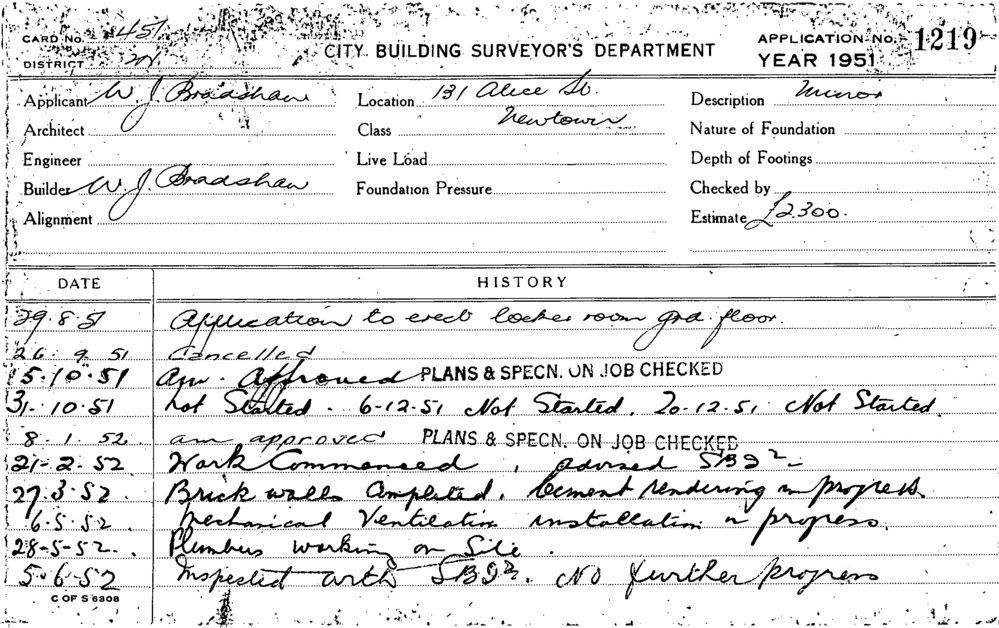 CARD No. 451
DISTRICT N.
CITY BUILDING SURVEYOR'S DEPARTMENT
APPLICATION No. 1219
YEAR 1951
Applicant W. J. Bradshaw
Architect
Engineer
Builder W. J. Bradshaw
Alignment
Location 131 Alice St.
Class Newtown
Live Load
Foundation Pressure
Description Minor
Nature of Foundation
Depth of Footings
Checked by
Estimate £2300.
DATE HISTORY
29.8.51 Application to erect locker room grd. floor.
26.9.51 Cancelled
5.10.51 am. Approved PLANS & SPECN. ON JOB CHECKED
31.10.51 not Started. 6-12-51 Not Started. 20-12.51 Not Started.
8.1.52. am approved PLANS & SPECN. ON JOB CHECKED
21-2.52. Work Commenced, advised
27.3.52. Brick walls Completed. Cement rendering in progress.
6.5.52. Mechanical Ventilation installation in progress.
28-5-52. Plumbers working on Site.
5.6.52 Inspected with No further progress
C OF S 6308